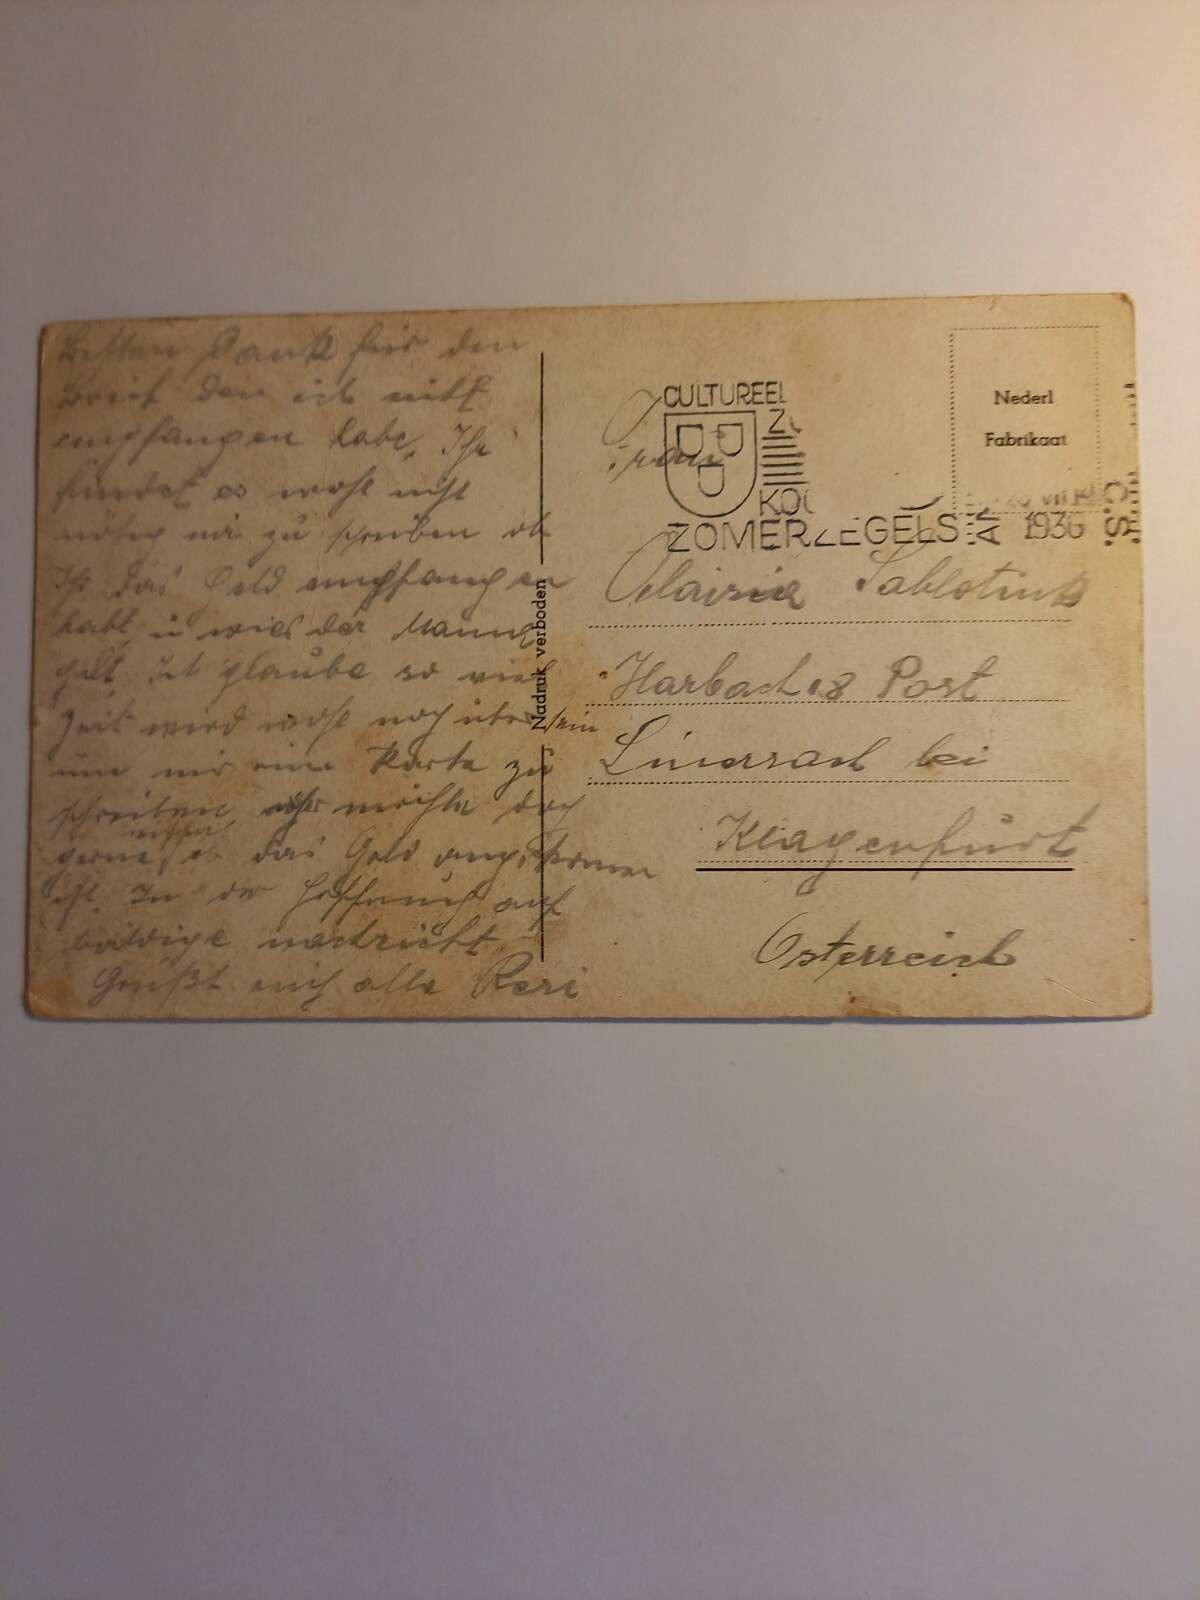 Besten Dank für den
Brief den ich nicht
empfangen habe. Ihr
findet es wohl nicht
nötig mir zu schreiben ob
Ihr das Geld empfangen
habt u wies der
geht. Ich glaube so viel
Zeit wird wohl noch über sein
um mir eine Karte zu
schreiben möchte doch
gerne wissen ob das Geld angekommen
ist. In der Hoffnung auf
baldige nachricht
Grüßt euch alle Resi
Nadruk verboden
CULTUREEL
ZOMERZEGELS
1936
Nederl
Fabrikaat
Frau
Harbach 18 Post
bei
Klagenfurt
Österreich